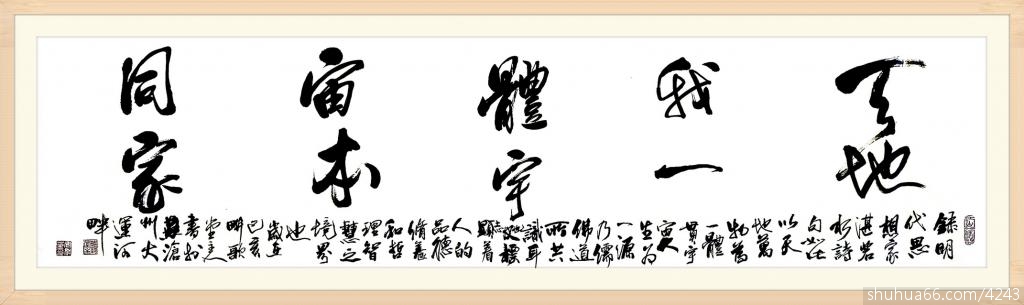 天地
我一
體宇
宙本
同家
錄明
代思
想家
湛若
水詩
句此
以天
地萬
物為
一體
貫宇
宙人
生為
一源
乃儒
佛道
所共
識耳
顯着
人的
品德
修養
和哲
理智
慧之
境界
也
己亥
書於
滄
州大
運河
畔
shuhua66.com/4243